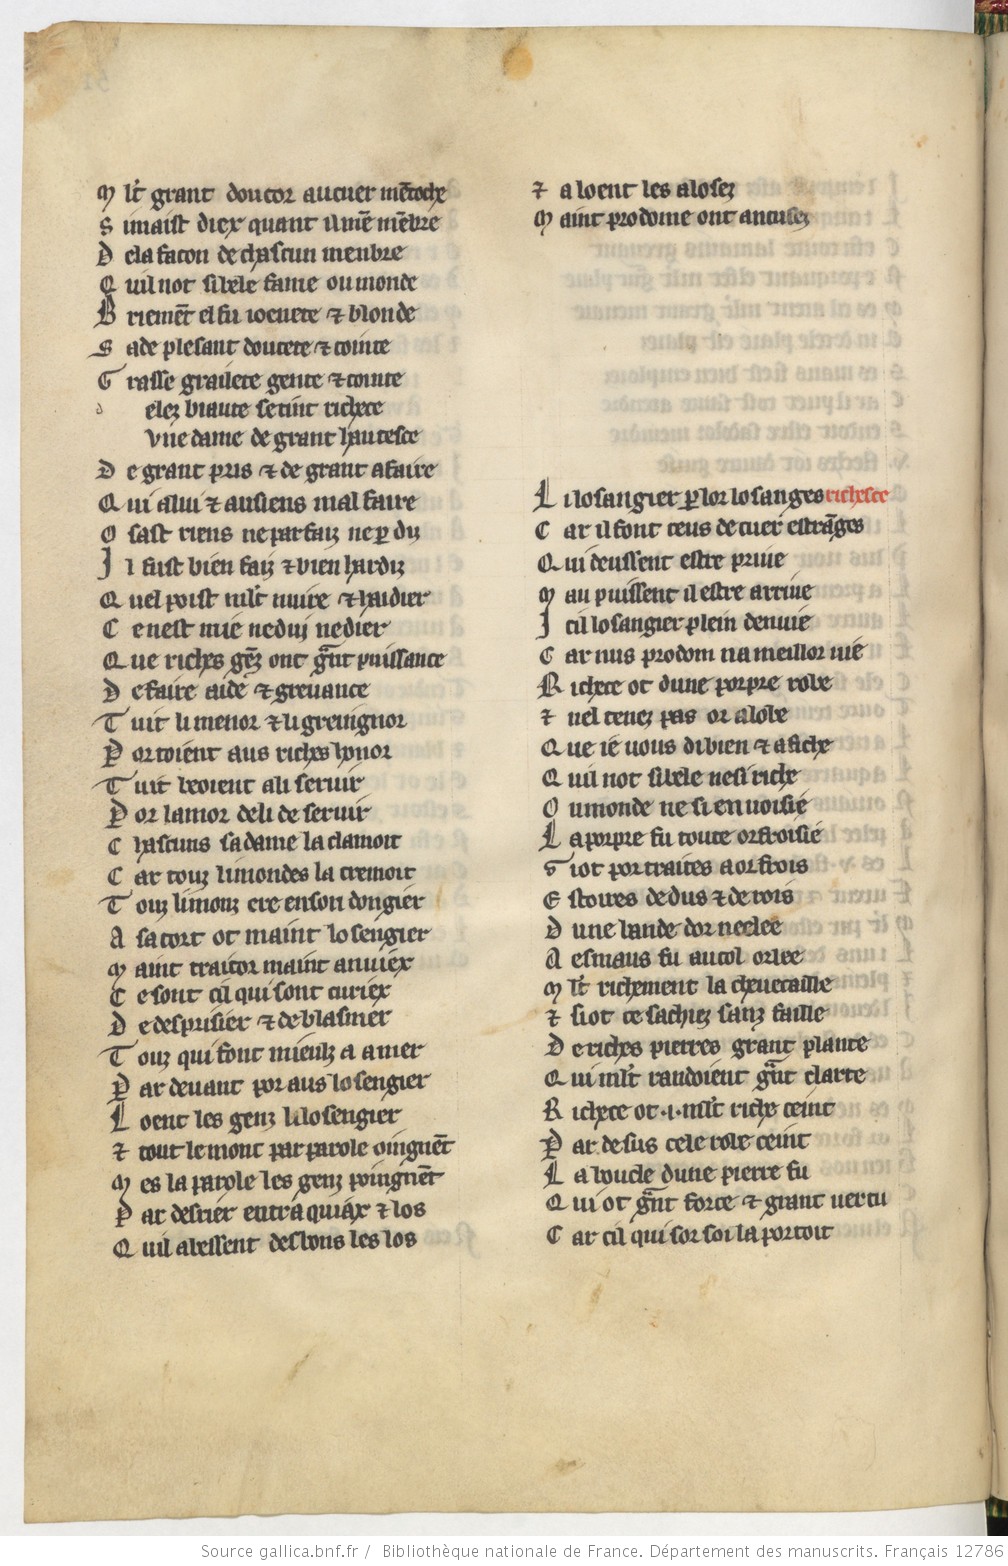 M lt grant doucor au cuer me toche
S i maist diex quant il me membre
D e la facon de chascun menbre
Q uil not si bele fame ou monde
B riement el fu joenete ⁊ blonde
S ade plesant doucete ⁊ cointe
G rasse grailete gente ⁊ cointe
d elez biaute se tint richece
vne dame de grant hautesce
D e grant pris ⁊ de grant afaire
Q ui a lui ⁊ au siens mal faire
O sast riens ne par faiz ne par diz
I l fust bien faiz ⁊ bien hardiz
Q uel poist mlt nuire ⁊ haidier
C e nest mie ne dui ne dier
Q ue riches genz ont grant puissance
D e faire aide ⁊ grevance
T uit li menor ⁊ li greingnor
P ortoient aus riches honor
T uit beoient a li servir
P or lamor de li deservir
C hascuns sa dame la clamoit
C ar touz li mondes la cremoit
T ouz li monz ere en son dongier
A sa cort ot maint losengier
M aint traitor maint anviex
C e sont cil qui sont curiex
D e desprisier ⁊ de blasmer
T ouz qui font mieulz a amer
P ar devant por aus losengier
L oent les genz li losengier
⁊ tout le mont par parole oingnent
M es la parole les genz poingnent
P ar derrier entraquiax ⁊ los
Q uil abessent des bons les los
⁊ aloent les alosez
M aint prodome ont ancusez
L i losangier par lor losanges richesce
C ar il font ceus de cuer estranges
Q ui deussent estre prive
M au puissent il estre arrive
I cil losangier plein denvie
C ar nus prodom na meillor vie
R ichece ot dune porpre robe
⁊ nel tenez pas or a lobe
Q ue ie vous di bien ⁊ afiche
Q uil not si bele ne si riche
O u monde ne si envoisie
L a porpre fu toute orfroisie
S i ot portraites a orfrois
E stoires de dus ⁊ de rois
D une bande dor neelee
A esmaus fu au col orlee
M lt richement la chevecaille
⁊ si ot ce sachiez sanz faille
D e riches pierres grant plante
Q ui mlt randoient grant clarte
R ichece ot .i. mlt riche ceint
P ar desus cele robe ceint
L a boucle dune pierre fu
Q ui ot grant force ⁊ grant vertu
C ar cil qui sor soi la portoit
Source gallica.bnf.fr / Bibliothèque nationale de France. Département des manuscrits. Français 12786